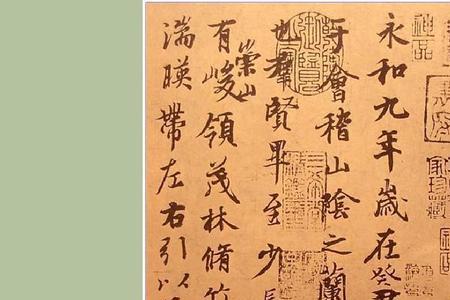 永和九年歲在癸
于會稽山陰之蘭
也羣賢畢至少
有崇山峻領茂林脩竹
湍暎帶左右引以
神品
家珍藏